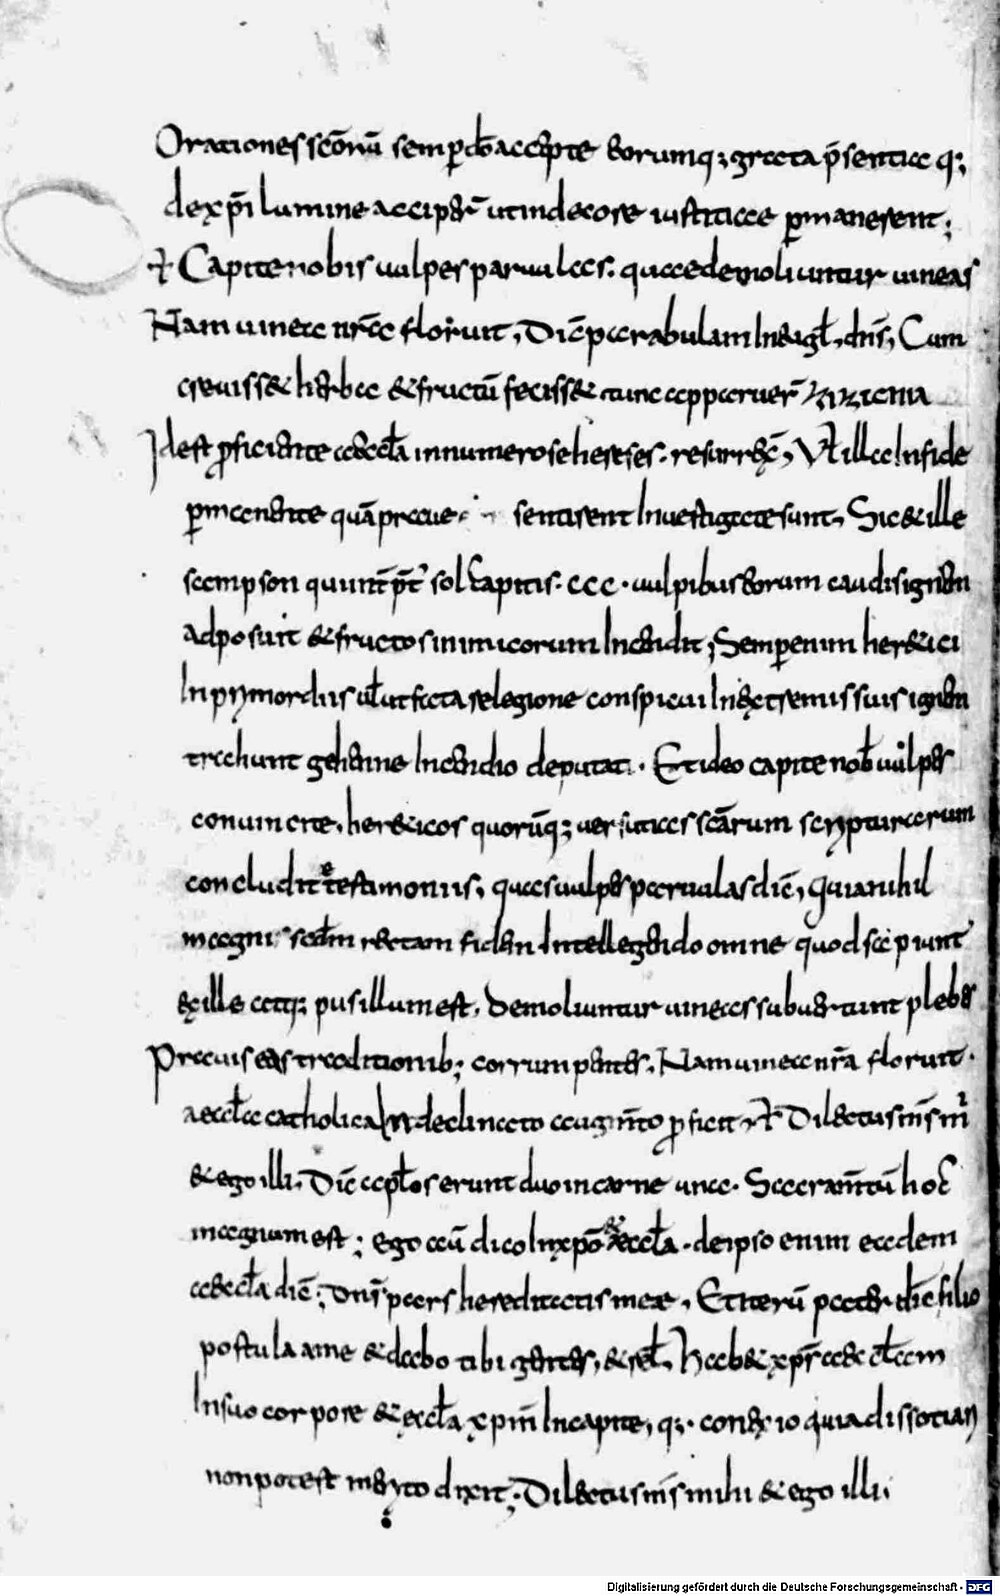 Orationes scōrū semp do accepte eorumq; grata p̄sentia q;
de xp̄i lumine acciper̄ ut in decore iustitiae pmanerent;
Capite nobis uulpes paruulas. quae demoliuntur uineas
Nam uinea nr̄a floruit, Dic̄ parabulam In eugł, dn̄s, Cum
creuisset herba & fructū fecisset tunc apparuer̄ zizania
Id est proficiente aeccła innumerose hereses. resurrex̄, Ut illa In fide
pmanente quā praue sentirent Inuestigate sunt, Sic & ille
sampson qui Int̄p̄t sol capitis. ccc. uulpibus eorum caudis ignem
adposuit & fructos inimicorum Incendit; Semp enim heretici
In primordiis uł ut ficta relegione conspicui In extremis suis ignem
trahunt gehenne Incendio deputati. Et ideo capite nob uulpes
conuincite. hereticos quorūq; uersutias scārum scripturarum
concludite testimoniis, quas uulpes paruulas dic̄, quia nihil
magni scdm rectam fidem Intellegendo omne quod sapiunt
ex ille atq; pusillum est. Demoliuntur uineas subuertunt plebes
Prauis eas traditionib; corrumpentes. Nam uinea nr̄a floruit.
aeccła catholica In declinato augm̄to pficit Dilectus ms̄ m̄
& ego illi. Dic̄ apłos erunt duo in carne una. Sacram̄tū hoc
magnum est; ego aū dico In xpō & eccła. de ipso enim eadem
aeccła dic̄; Dns̄ pars hereditatis meae, Et iterū pater dic̄ filio
postula a me & dabo tibi gentes, & reł, Habet xps̄ aeccłam
In suo corpore & eccła xpm̄ In capite, q; conexio quia dissotiari
non potest merito dixit; Dilectus ms̄ mihi & ego illi;
Digitalisierung gefördert durch die Deutsche Forschungsgemeinschaft - DFG